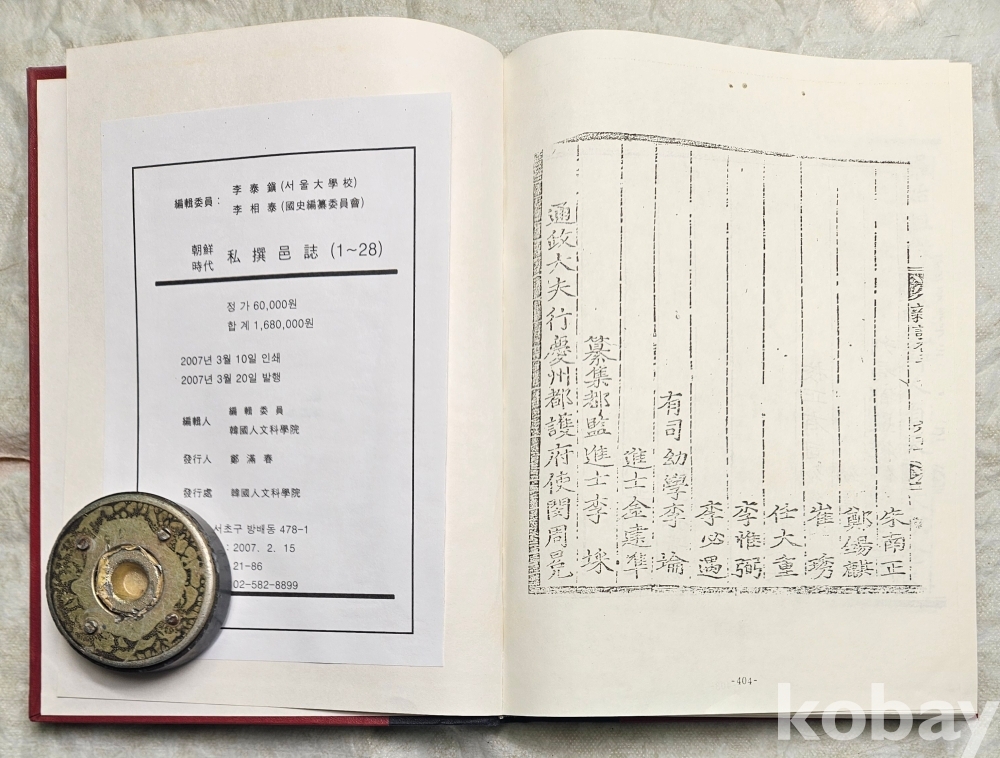 編輯委員 : 李 泰 鎭 (서 울 大 學 校)
李 相 泰 (國史編纂委員會)
朝鮮時代 私 撰 邑 誌 (1~28)
정 가 60,000원
합 계 1,680,000원
2007년 3월 10일 인쇄
2007년 3월 20일 발행
編輯人 編 輯 委 員
韓國人文科學院
發行人 鄭 滿 春
發行處 韓國人文科學院
서초구 방배동 478-1
: 2007. 2. 15
21-86
02-582-8899
朱南正
鄭錫麒
崔琇
任大重
李惟弼
李必遇
有司幼學李 埨
進士金建準
纂集都監進士李 埰
通政大夫行慶州都護府使閔周冕
-404-
kobay